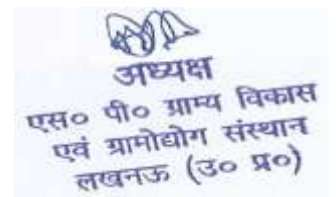 अध्यक्ष
एस० पी० ग्राम्य विकास
एवं ग्रामोद्योग संस्थान
लखनऊ (उ० प्र०)